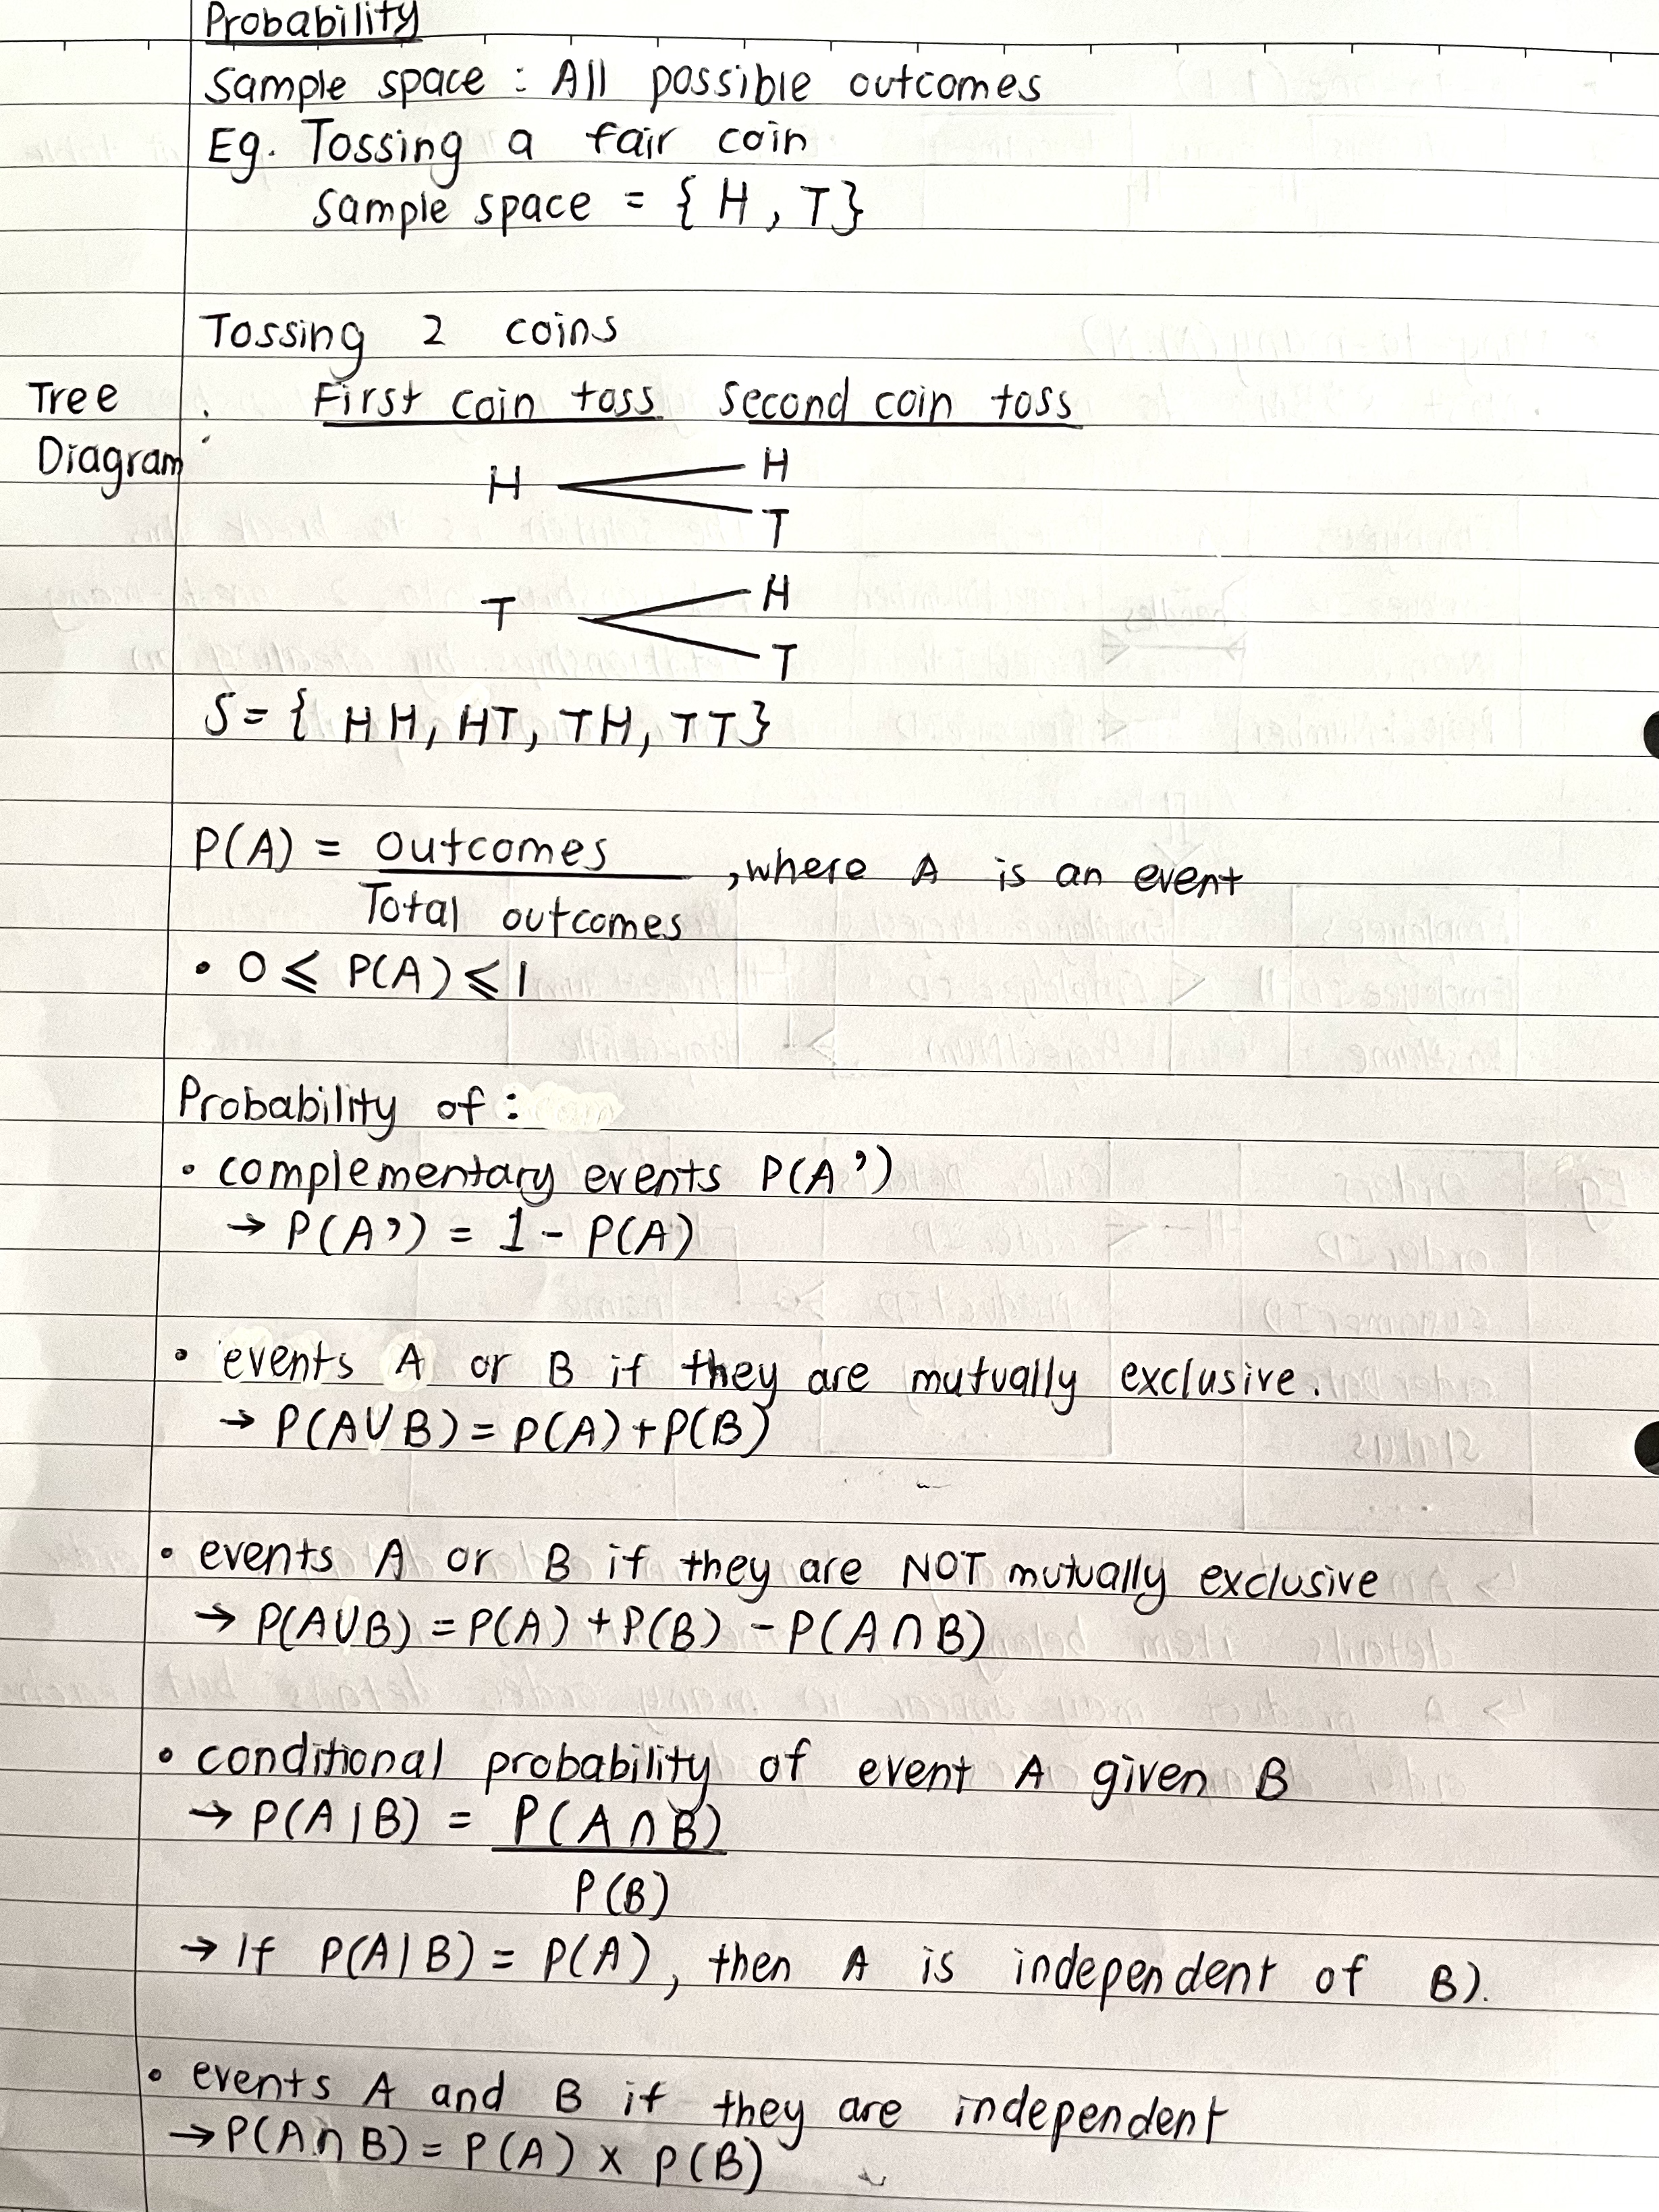 Probability
Sample space : All possible outcomes
Eg. Tossing a fair coin
Sample space = { H , T }
Tossing 2 coins
Tree Diagram :
First coin toss Second coin toss
H H
T
T H
T
S = { HH, HT, TH, TT }
P(A) = outcomes / Total outcomes , where A is an event
• 0 ⩽ P(A) ⩽ 1
Probability of :
• complementary events P(A')
→ P(A') = 1 - P(A)
• events A or B if they are mutually exclusive.
→ P(A∪B) = P(A) + P(B)
• events A or B if they are NOT mutually exclusive
→ P(A∪B) = P(A) + P(B) - P(A∩B)
• conditional probability of event A given B
→ P(A|B) = P(A∩B) / P(B)
→ If P(A|B) = P(A), then A is independent of B).
• events A and B if they are independent
→ P(A∩B) = P(A) × P(B)